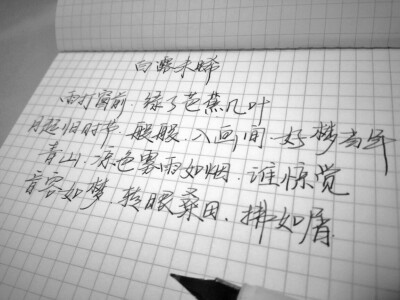 白露未晞
雨打窗前 绿了芭蕉几叶
月起归时节 殷殷 入画间 好梦当年
青山 凉色雾雨如烟 谁惊觉
音容如梦 转眼桑田 拂如眉